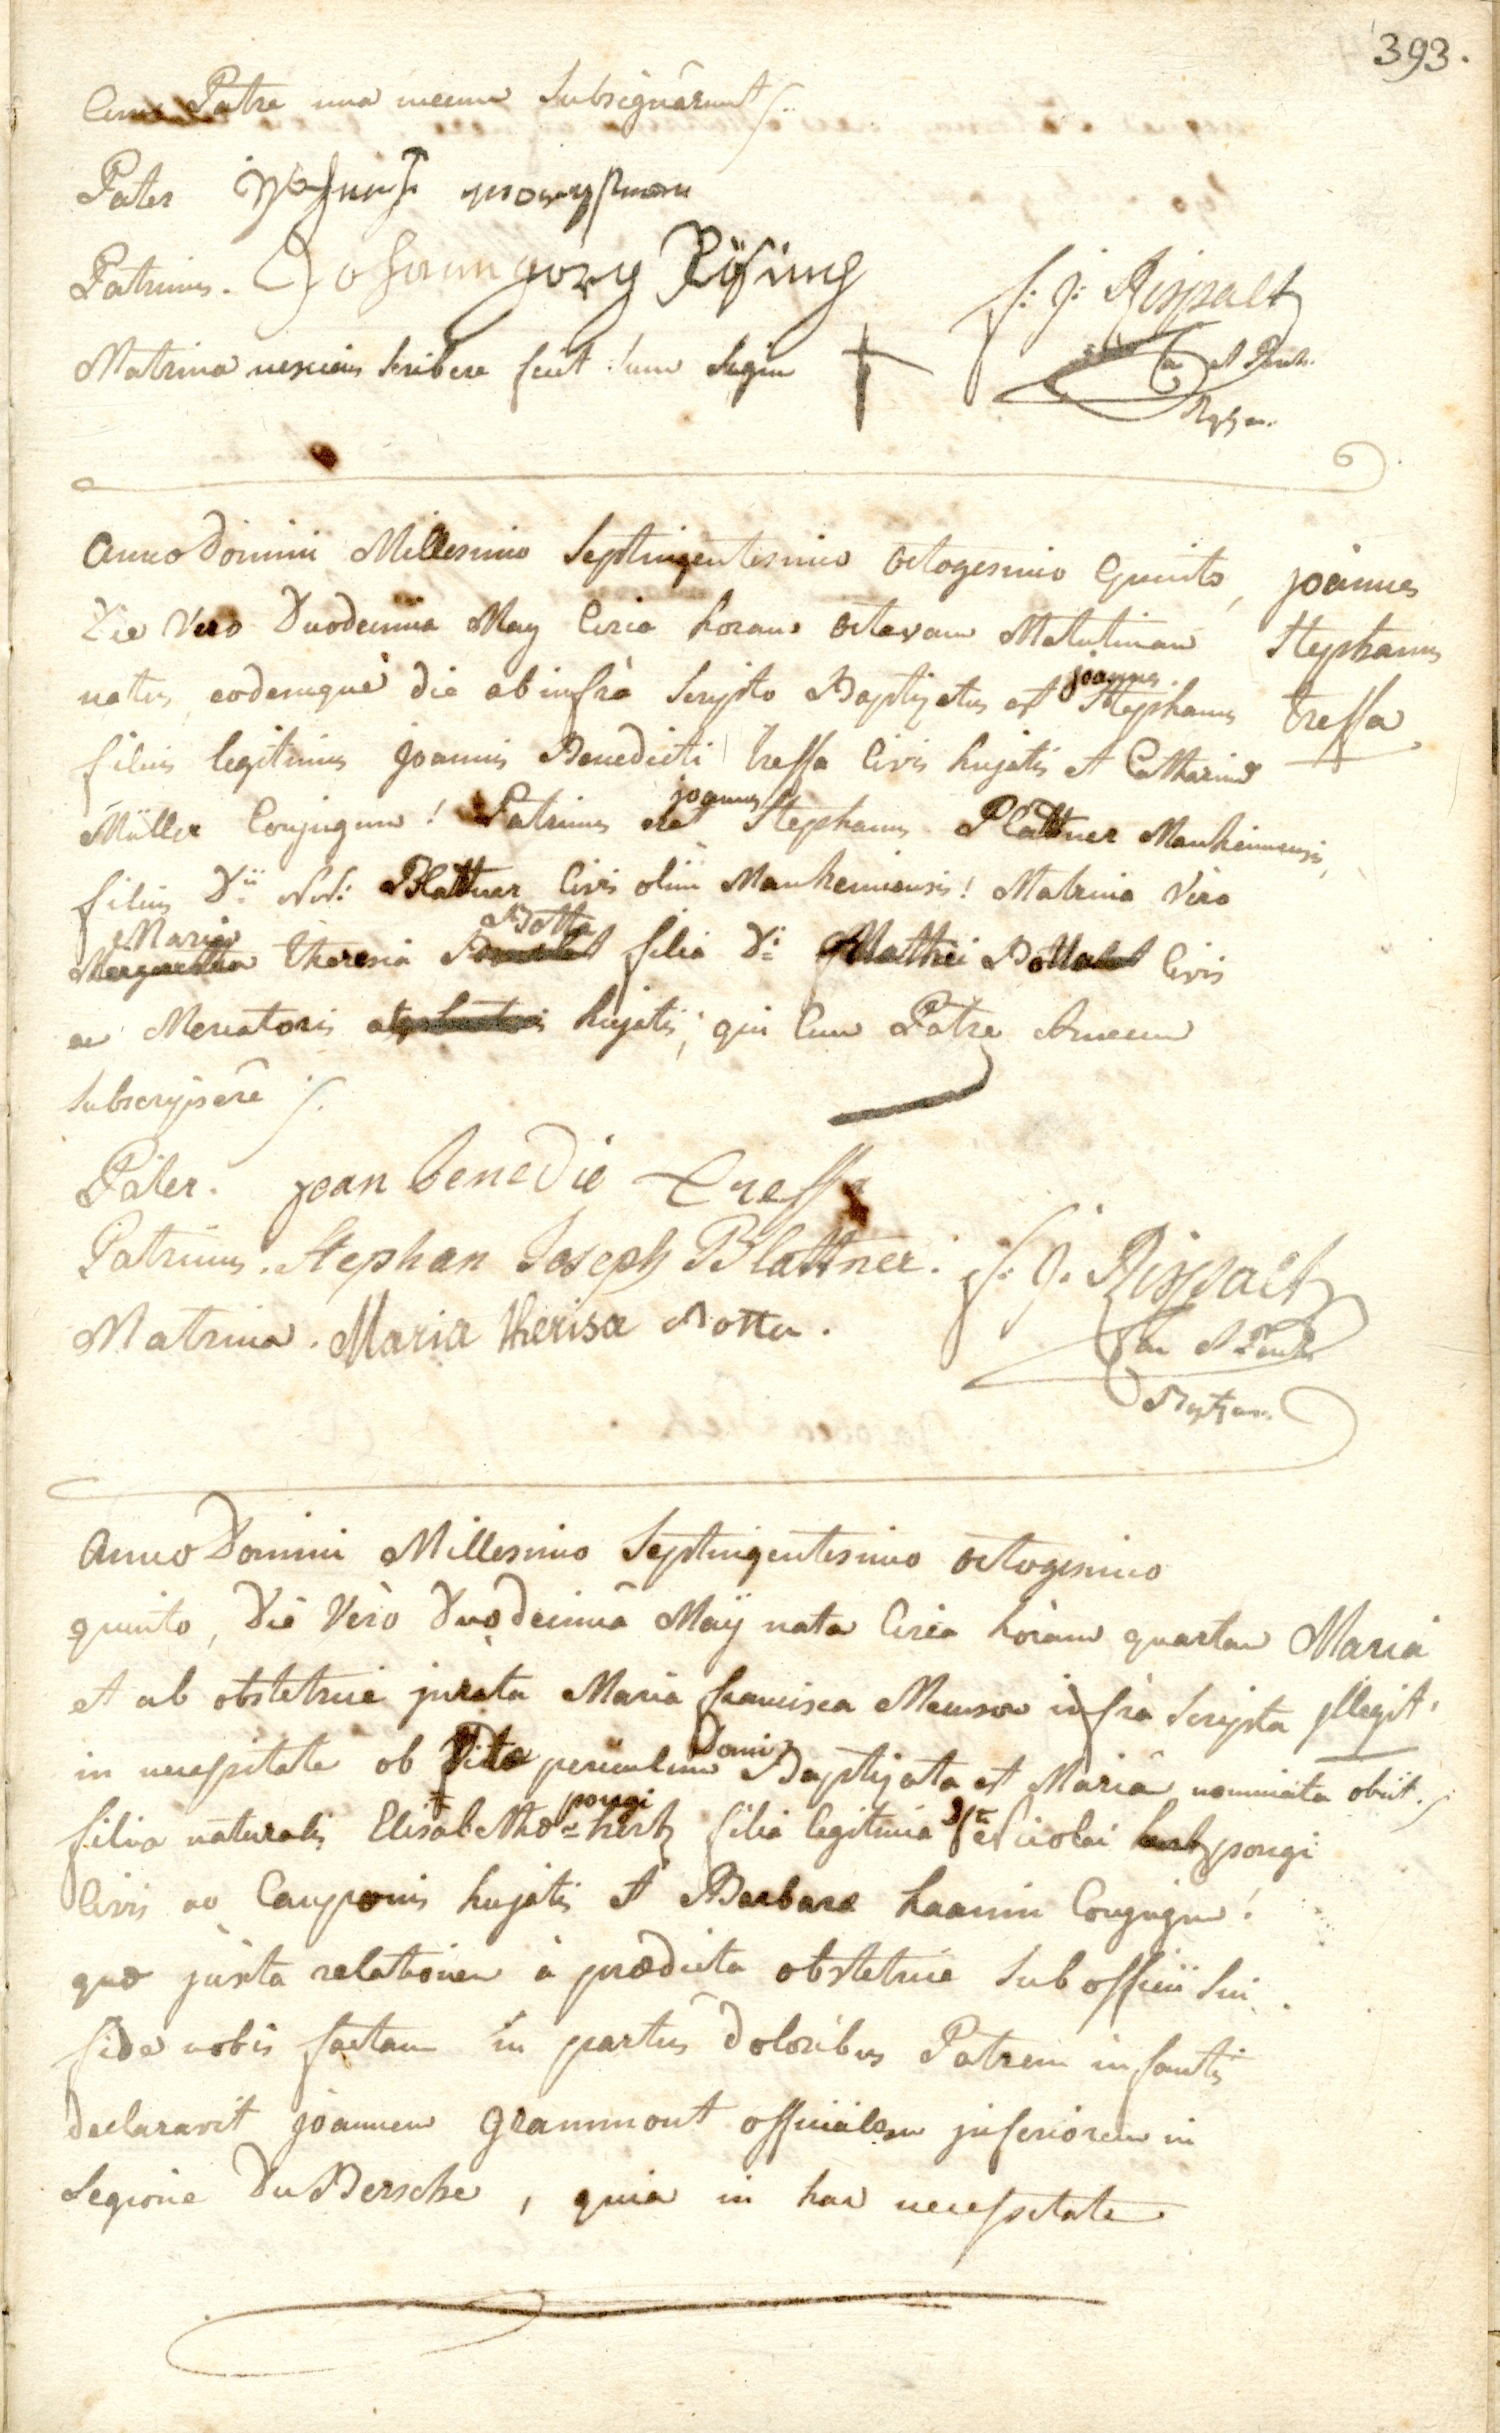 393.
Cum Patre una mecum Subsignârunt
Pater
Patrinus. Johann görg Rösing
Matrina nesciens Scribere fecit suum Signum
f: J: Rispalt
Anno Domini Millesimo Septingentesimo Octogesimo Quinto,
Die Vero Duodecima May Circa horam Octavam Matutinam
natus, eodemque die ab infrà Scripto Baptizatus est joannes Stephanus
filius legitimus Joannis Benedicti Treffa Civis hujatis et Catharinæ
Müller Conjugum! Patrinus erat joannes Stephanus Plattner Manhemiensis,
filius Dni N.N: Blattner Civis olim Manhemiensis! Matrina Vero
Maria Theresia Botta filia Di Matthei Botta Civis
ac Mercatoris hujatis; qui Cum Patre & mecum
Subscripsêre
joannes
Stephanus
Treffa
Pater. jean benedic treffa
Patrinus. Stephan Joseph Blattner.
Matrina. Maria therisa Botta.
f: J: Rispalt
Anno Domini Millesimo Septingentesimo Octogesimo
quinto, Die Verò Duodecimâ Maÿ nata Circa horam quartam
et ab obstetrice jurata Maria francisca infrà Scripta
in necessitate ob Vitæ periculum Domi Baptizata et Maria nominata
filia naturalis Elisabethæ pongi filia legitima Nicolai pongi
Civis ac Cauponis hujatis et Barbara haanin Conjugum!
quæ juxta relationem à prædicta obstetrice Sub officii Sui
fide nobis factam in partus doloribus Patrem infantis
declaravit joannem Grammont officialem inferiorem in
Legione Du Bersche, quia in hac necessitate
Maria
illegit.
obiit.